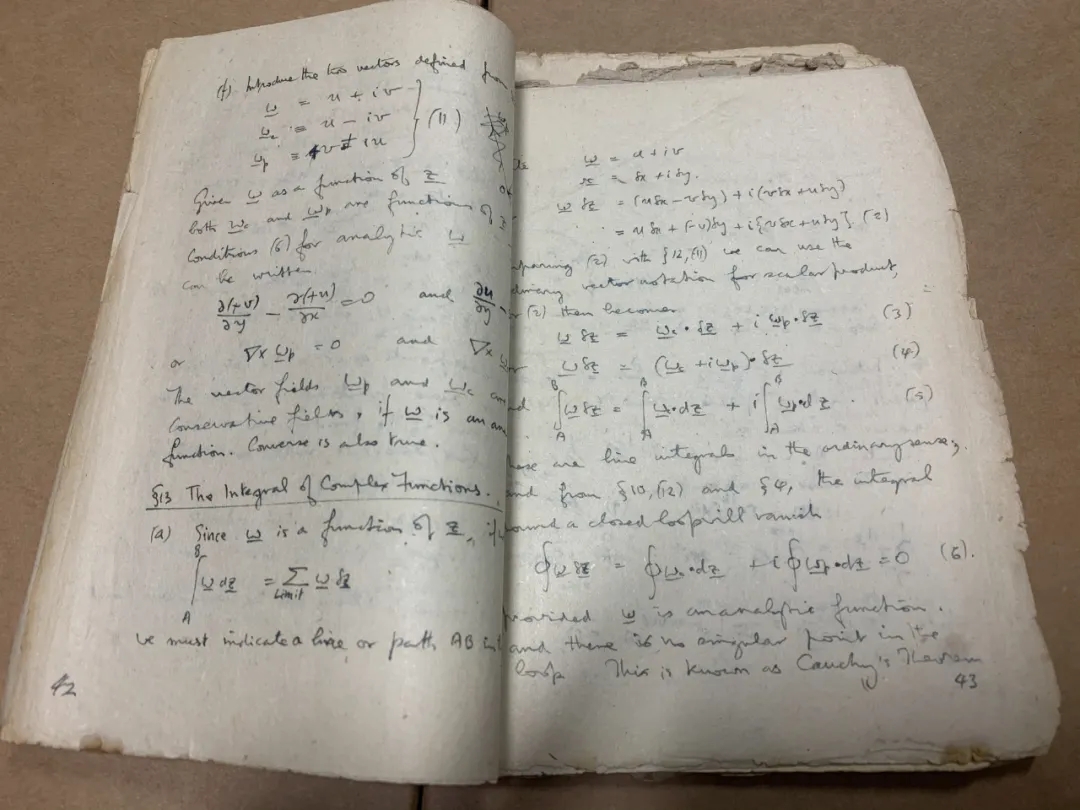 (f) Introduce the two vectors defined from
w = u + iv
w_c = u − iv } (11)
w_p = v + iu
Given w as a function of z
both w_c and w_p are functions of z
Conditions (6) for analytic w
can be written
∂(+v)/∂y − ∂(+u)/∂x = 0 and ∂u/∂y
or ∇× w_p = 0 and ∇× w
The vector fields w_p and w_c
conservative fields, if w is an
function. Converse is also true.
§13 The Integral of Complex Functions.
(a) Since w is a function of z, if
∫_A^B w dz = ∑_Limit w δz
we must indicate a line or path AB
42
w = u + iv
= δx + iδy.
w δz = (uδx − vδy) + i(vδx + uδy)
= uδx + (−v)δy + i{vδx + uδy} (2)
(2) with §12,(11) we can use the
vector notation for scalar product,
(2) then becomes
w δz = w_c · δz + i w_p · δz (3)
w δz = (w_c + iw_p) · δz (4)
∫_A^B w δz = ∫_A^B w_c · dz + i∫_A^B w_p · dz. (5)
are line integrals in the ordinary sense;
and from §10,(12) and §4, the integral
round a closed loop will vanish
∮w δz = ∮w_c · dz + i∮w_p · dz = 0 (6).
provided w is an analytic function.
and there is no singular point in the
loop This is known as Cauchy's Theorem
43